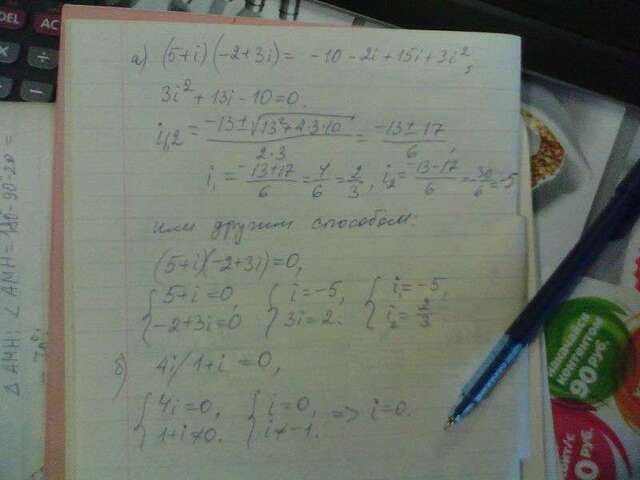 DEL
AC
а) (5+i)(-2+3i)= -10-2i+15i+3i²,
3i²+13i-10=0.
i₁,₂ = (-13±√(13²+4·3·10))/(2·3) = (-13±17)/6,
i₁ = (-13+17)/6 = 4/6 = 2/3, i₂ = (-13-17)/6 = 30/6 = -5
или другим способом:
(5+i)(-2+3i)=0,
{5+i=0, {i=-5, {i₁=-5,
-2+3i=0 3i=2. i₂=2/3
б) 4i/1+i =0,
{4i=0, {i=0, => i=0.
1+i≠0. i≠-1.
Δ AMH: ∠ AMH = 180-90-20 =
90
РУБ.
0 РУБ.